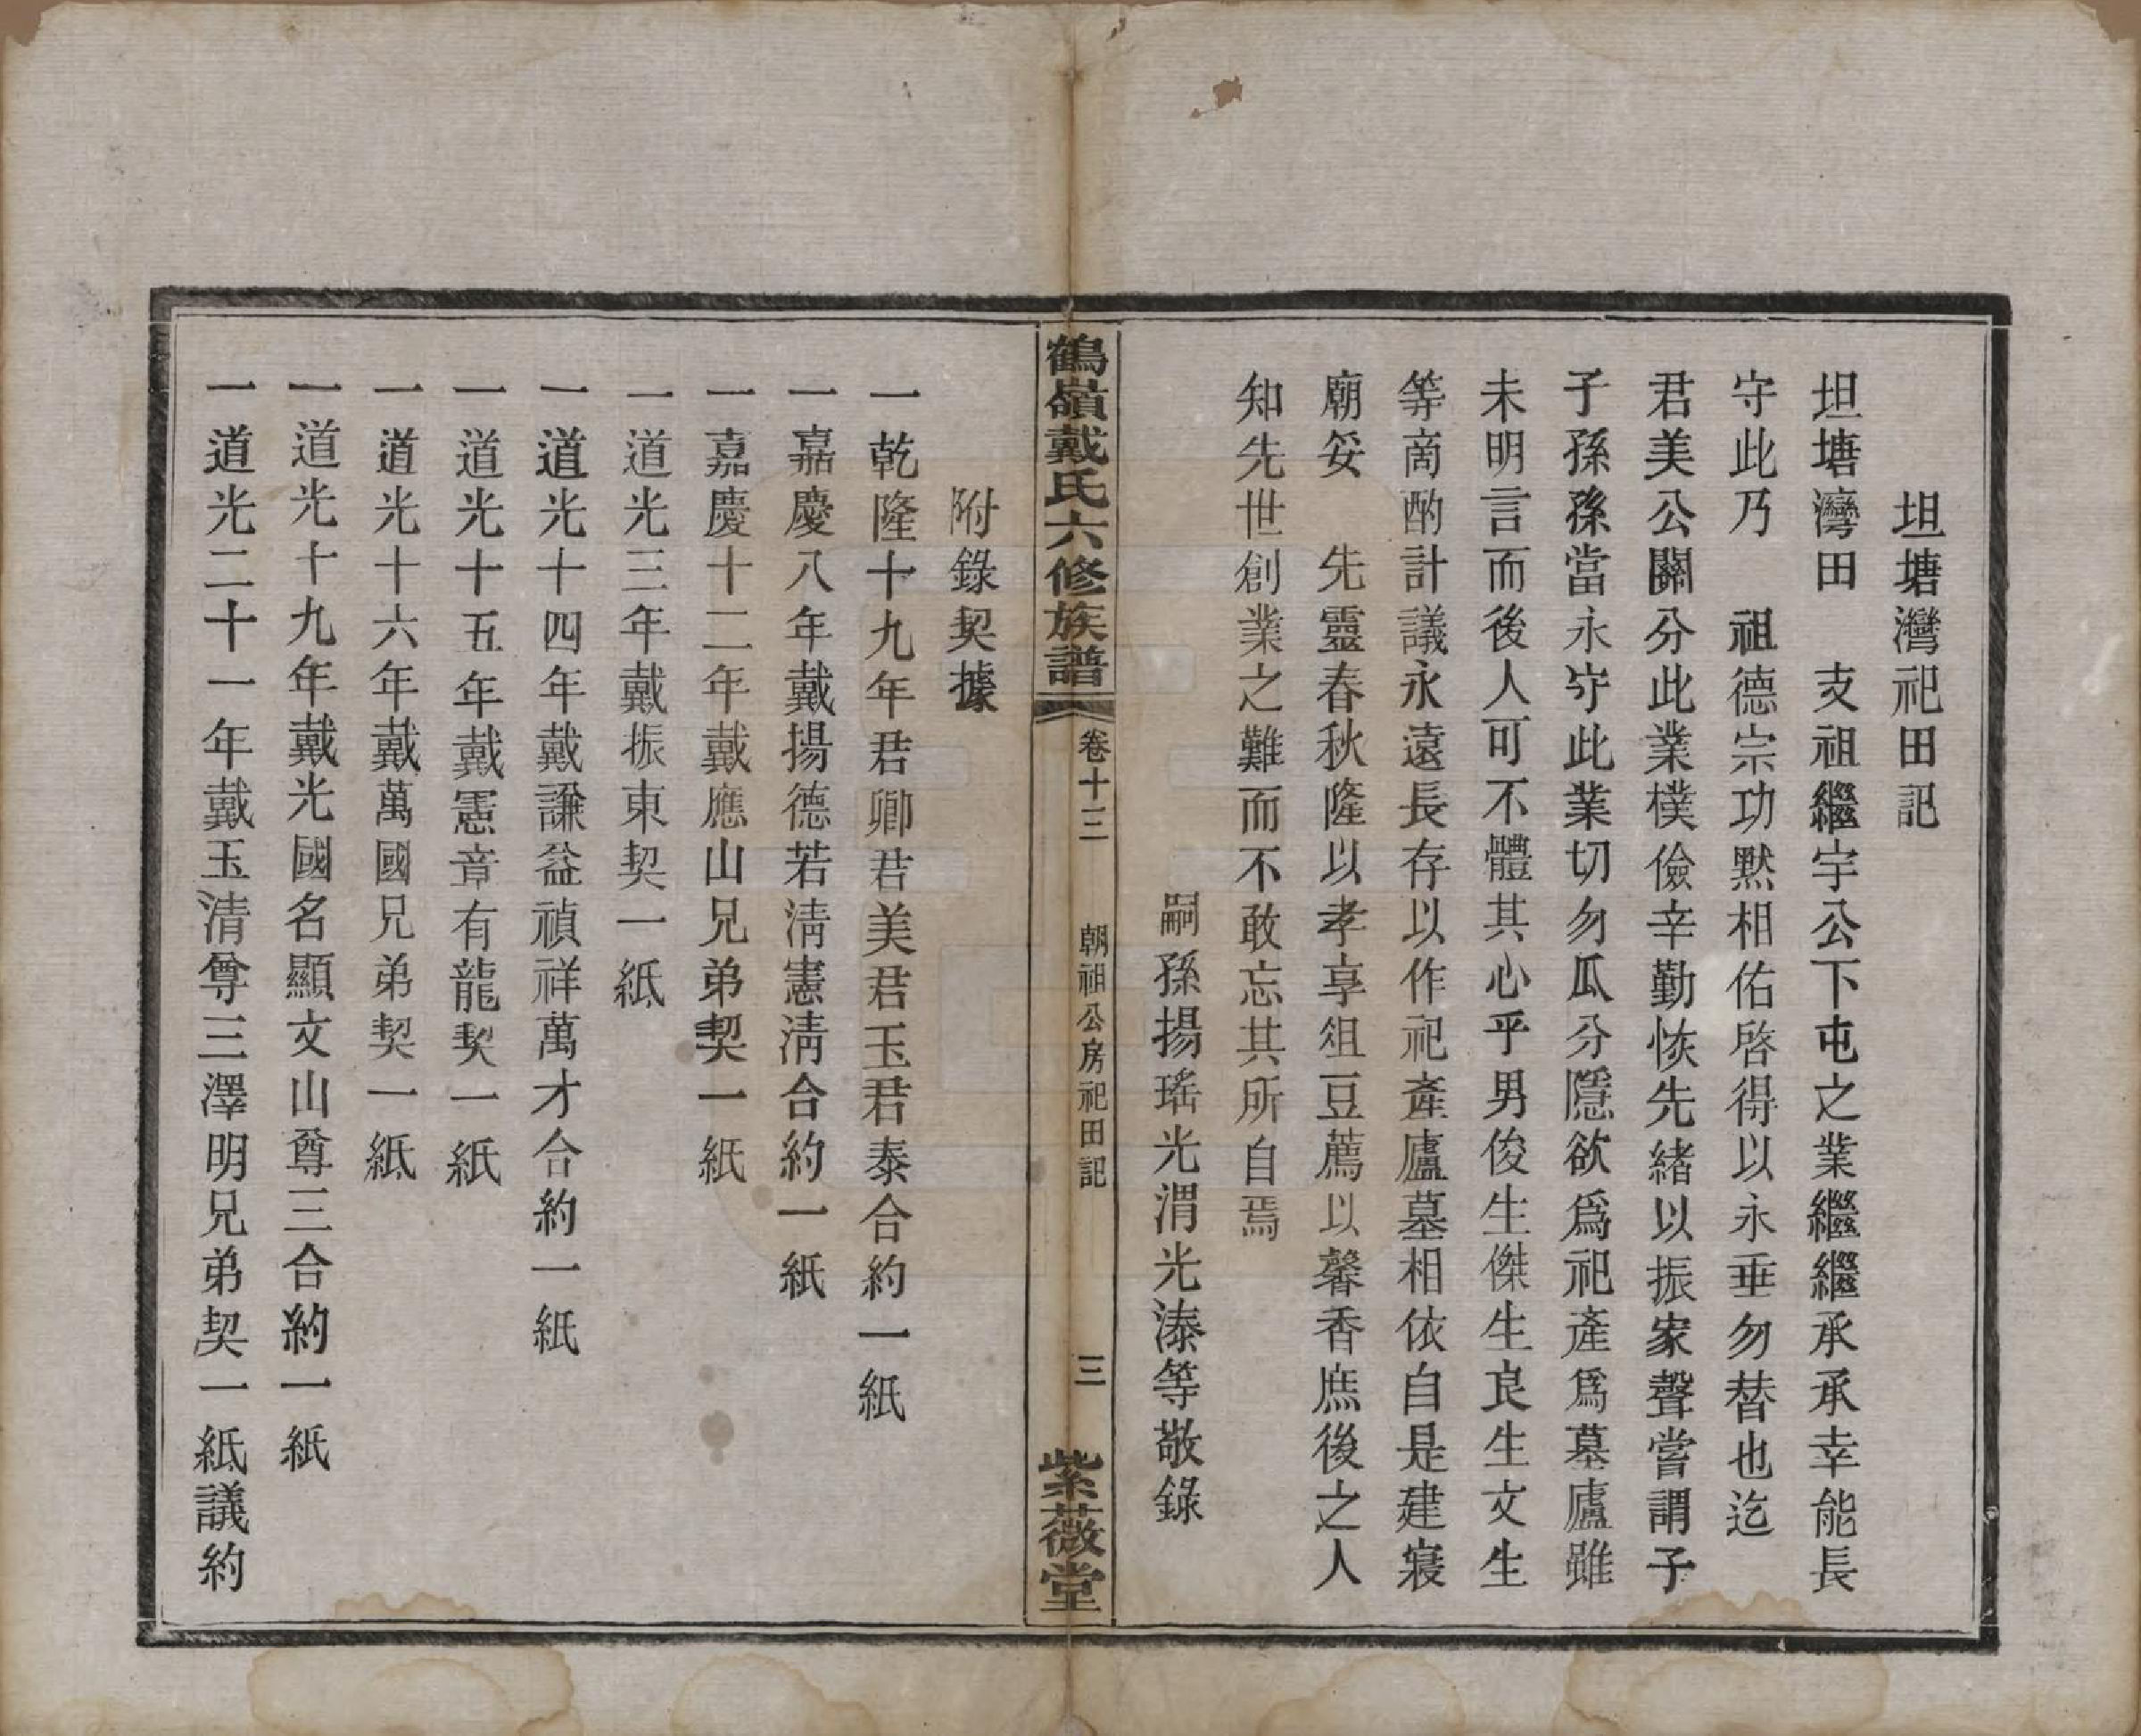 坦塘灣祀田記
坦塘灣田　支祖繼宇公下屯之業繼繼承承幸能長
守此乃　祖德宗功默相佑啓得以永垂勿替也迄
君美公鬮分此業樸儉辛勤恢先緒以振家聲嘗謂子
子孫孫當永守此業切勿瓜分隱欲爲祀產爲墓廬雖
未明言而後人可不體其心乎男俊生傑生良生文生
等商酌計議永遠長存以作祀產廬墓相依自是建寢
廟妥　先靈春秋隆以孝享俎豆薦以馨香庶後之人
知先世創業之難而不敢忘其所自焉
嗣孫揚瑤光渭光溙等敬錄
鶴嶺戴氏六修族譜　卷十三　朝祖公房祀田記　三　紫薇堂
附錄契據
一乾隆十九年君卿君美君玉君泰合約一紙
一嘉慶八年戴揚德若淸憲淸合約一紙
一嘉慶十二年戴應山兄弟契一紙
一道光三年戴振東契一紙
一道光十四年戴謙益禎祥萬才合約一紙
一道光十五年戴憲章有龍契一紙
一道光十六年戴萬國兄弟契一紙
一道光十九年戴光國名顯文山尊三合約一紙
一道光二十一年戴玉清尊三澤明兄弟契一紙議約